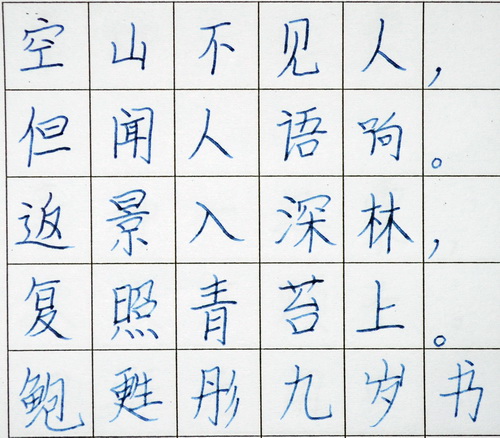 空山不见人，
但闻人语响。
返景入深林，
复照青苔上。
鲍甦彤九岁书